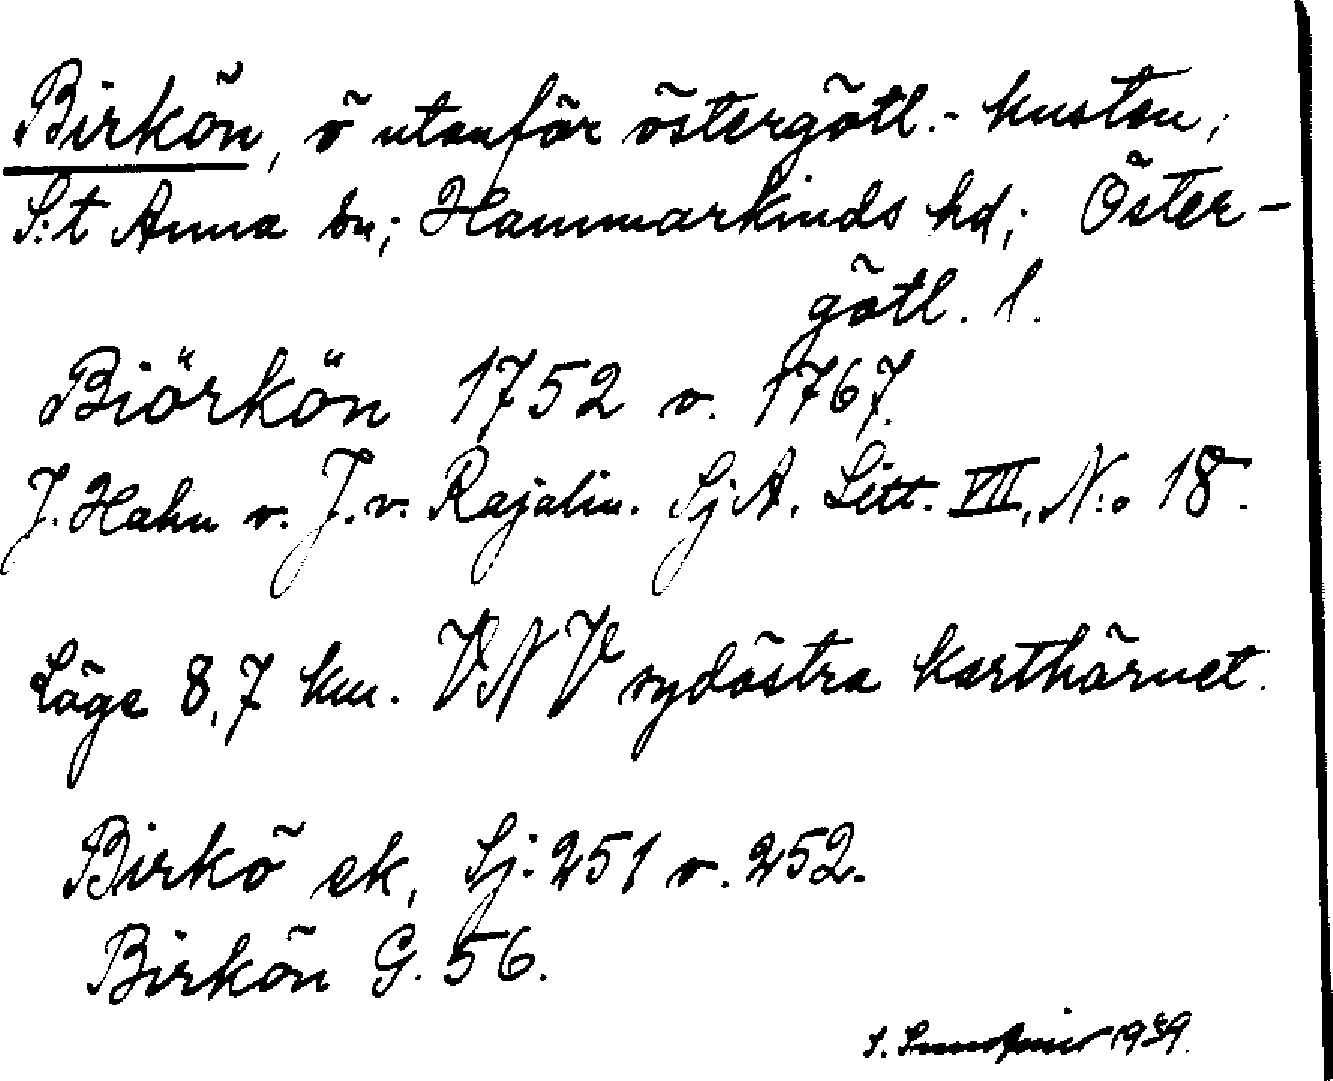 Birkön, ö utanför östergötl.- kusten;
S:t Anna sn; Hammarkinds hd; Öster-
götl. l.
Biörkön 1752 o. 1767.
J. Hahn o. J. v. Rajalin. Sj.A. Litt. VII, N:o 18.
Läge 8,7 km. VNV sydöstra karthörnet.
Birkö ek, Sj: 251 o. 252.
Birkön G. 56.
S. 1939.